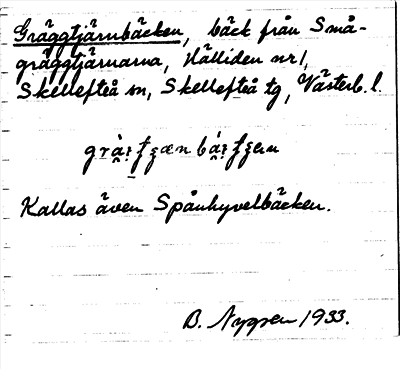 Gräggtjärnbäcken, bäck från Små-
gräggtjärnarna, Hälliden nr 1,
Skellefteå sn, Skellefteå tg, Västerb. l.
Kallas även Spånhyvelbäcken.
B. Nygren 1933.